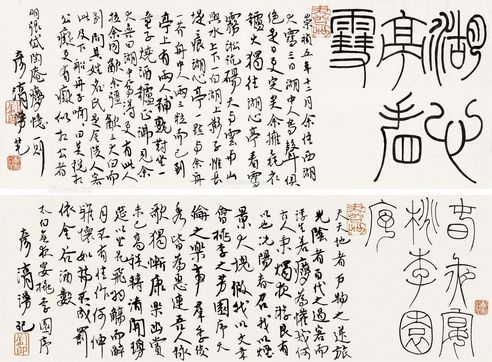 湖心
亭看
雪
崇禎五年十二月余住西湖
大雪三日湖中人鳥聲俱
絕是日更定矣余拏一小舟擁毳衣
爐火獨往湖心亭看雪
霧淞沆碭天與雲與山
與水上下一白湖上影子惟長
堤一痕湖心亭一點與余舟
一芥舟中人兩三粒而已到
亭上有兩人鋪氈對坐一
童子燒酒爐正沸見余
大喜曰湖中焉得更有此人
拉余同飲余強飲三大白而
別問其姓氏是金陵人客
此及下船舟子喃喃曰莫說相
公癡更有癡似相公者
明張岱陶庵夢憶一則
春夜宴
桃李園
序
夫天地者萬物之逆旅
光陰者百代之過客而
浮生若夢為懽幾何
古人秉燭夜遊良有
以也況陽春召我以煙
景大塊假我以文章
會桃李之芳園序天
倫之樂事群季俊
秀皆為惠連吾人詠
歌獨慚康樂幽賞
未已高談轉清開瓊
筵以坐花飛羽觴而醉
月不有佳作何伸
雅懷如詩不成罰
依金谷酒數
太白春夜宴桃李園序